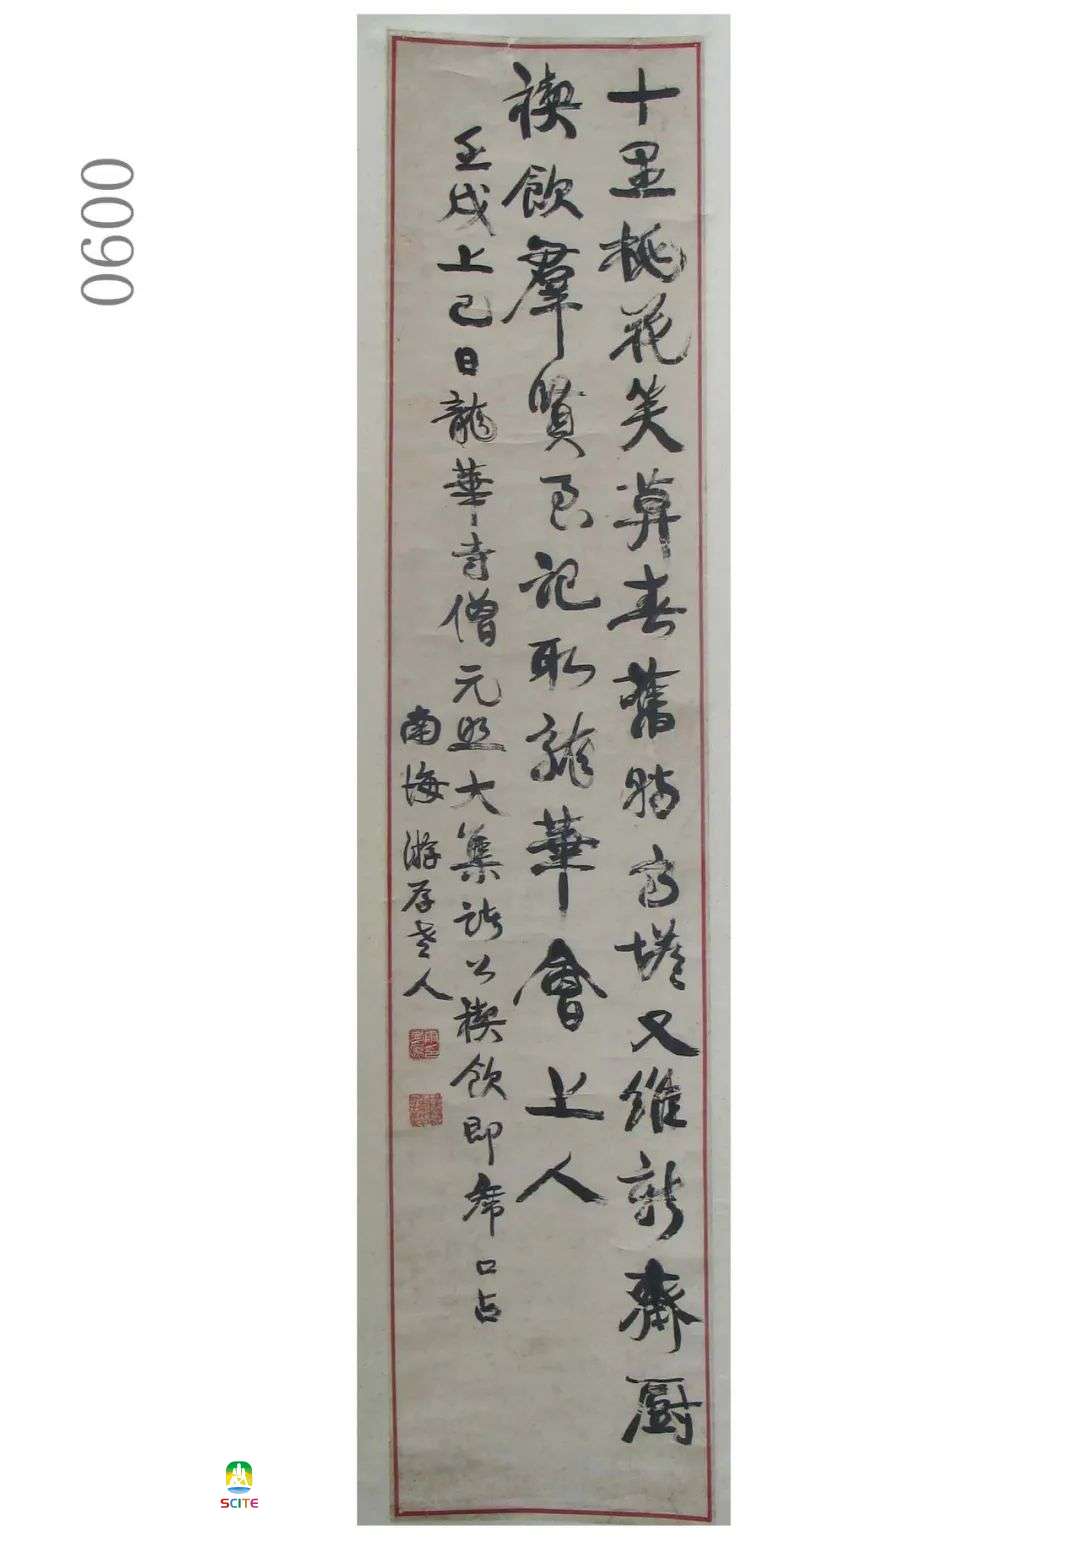 十里桃花笑算春舊時高塔又維新齋厨
禊飲羣賢忍記取龍華會上人
壬戌上巳日龍華寺僧元照大集諸公禊飲即席口占
南海游存老人
0600
SCITE